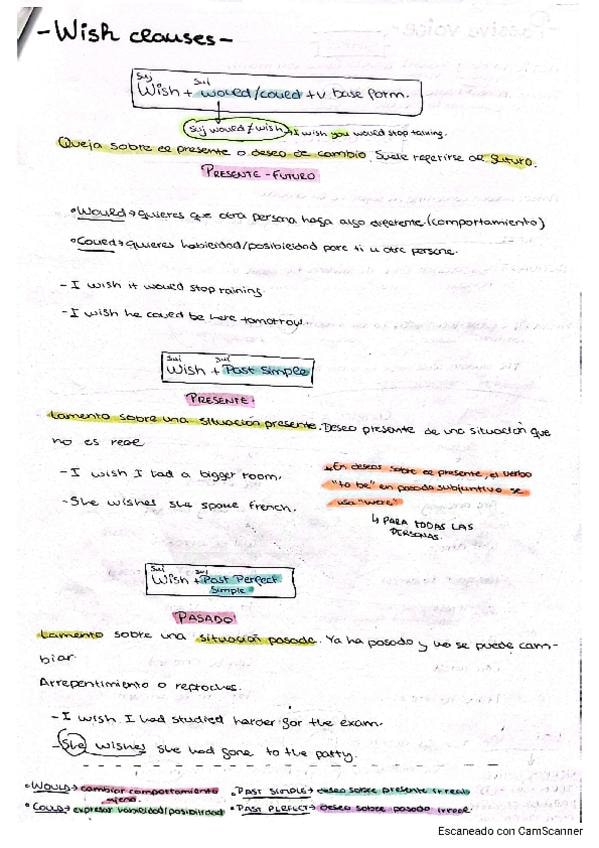 -Wish clauses-
Suj Suj
Wish + would/could + v. base form.
Suj would ≠ wish → I wish you would stop talking.
Queja sobre el presente o deseo de cambio. Suele referirse al futuro.
PRESENTE-FUTURO
• Would → quieres que otra persona haga algo diferente (comportamiento)
• Could → quieres habilidad/posibilidad para ti u otra persona.
- I wish it would stop raining.
- I wish he could be here tomorrow.
Suj Suj
Wish + Past Simple
PRESENTE.
Lamento sobre una situación presente. Deseo presente de una situación que
no es real
- I wish I had a bigger room.
- She wishes she spoke French.
*En deseos sobre el presente, el verbo
"to be" en pasado subjuntivo se
usa "were"
↳ PARA TODAS LAS
PERSONAS.
Suj Suj
Wish + Past Perfect
Simple
PASADO
Lamento sobre una situación pasada. Ya ha pasado y no se puede cam-
biar.
Arrepentimiento o reproches.
- I wish I had studied harder for the exam.
- She wishes she had gone to the party.
• WOULD → cambiar comportamiento
ajeno.
• COULD → expresar habilidad/posibilidad
• PAST SIMPLE → deseo sobre presente irreal
• PAST PERFECT → deseo sobre pasado irreal
Escaneado con CamScanner